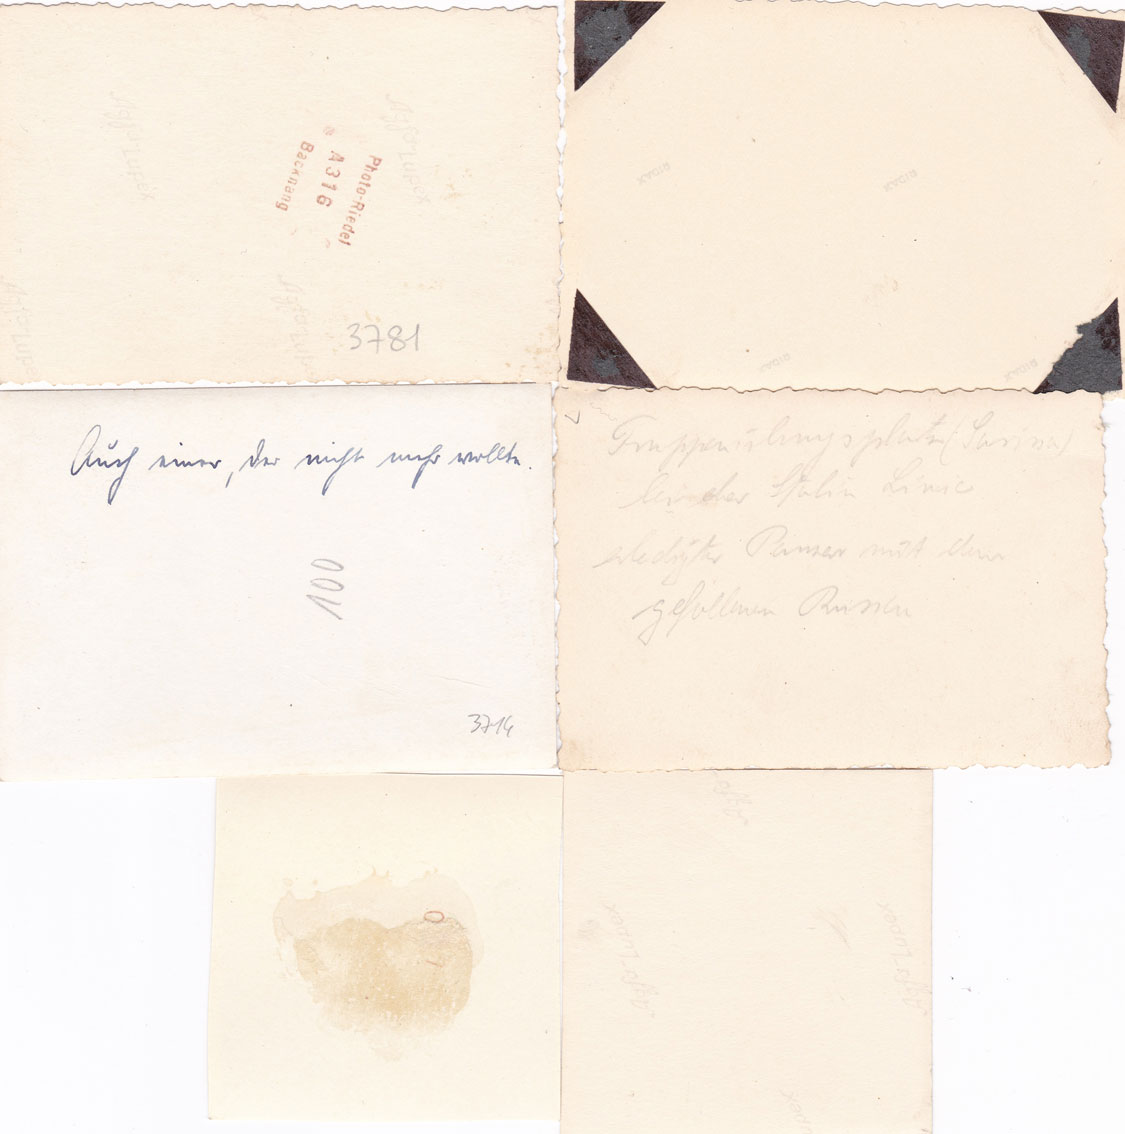 Agfa Lupex
Agfa Lupex
Photo-Riedel
A316
Backnang
Agfa Lupex
Agfa Lupex
3781
RIDAX
RIDAX
RIDAX
RIDAX
Auch einer, der nicht mehr wollte.
100
3714
Truppenübungsplatz
bei der Stalin Linie
erledigter Panzer mit den
gefallenen Russen
0
1
Agfa
Agfa Lupex
Agfa Lupex